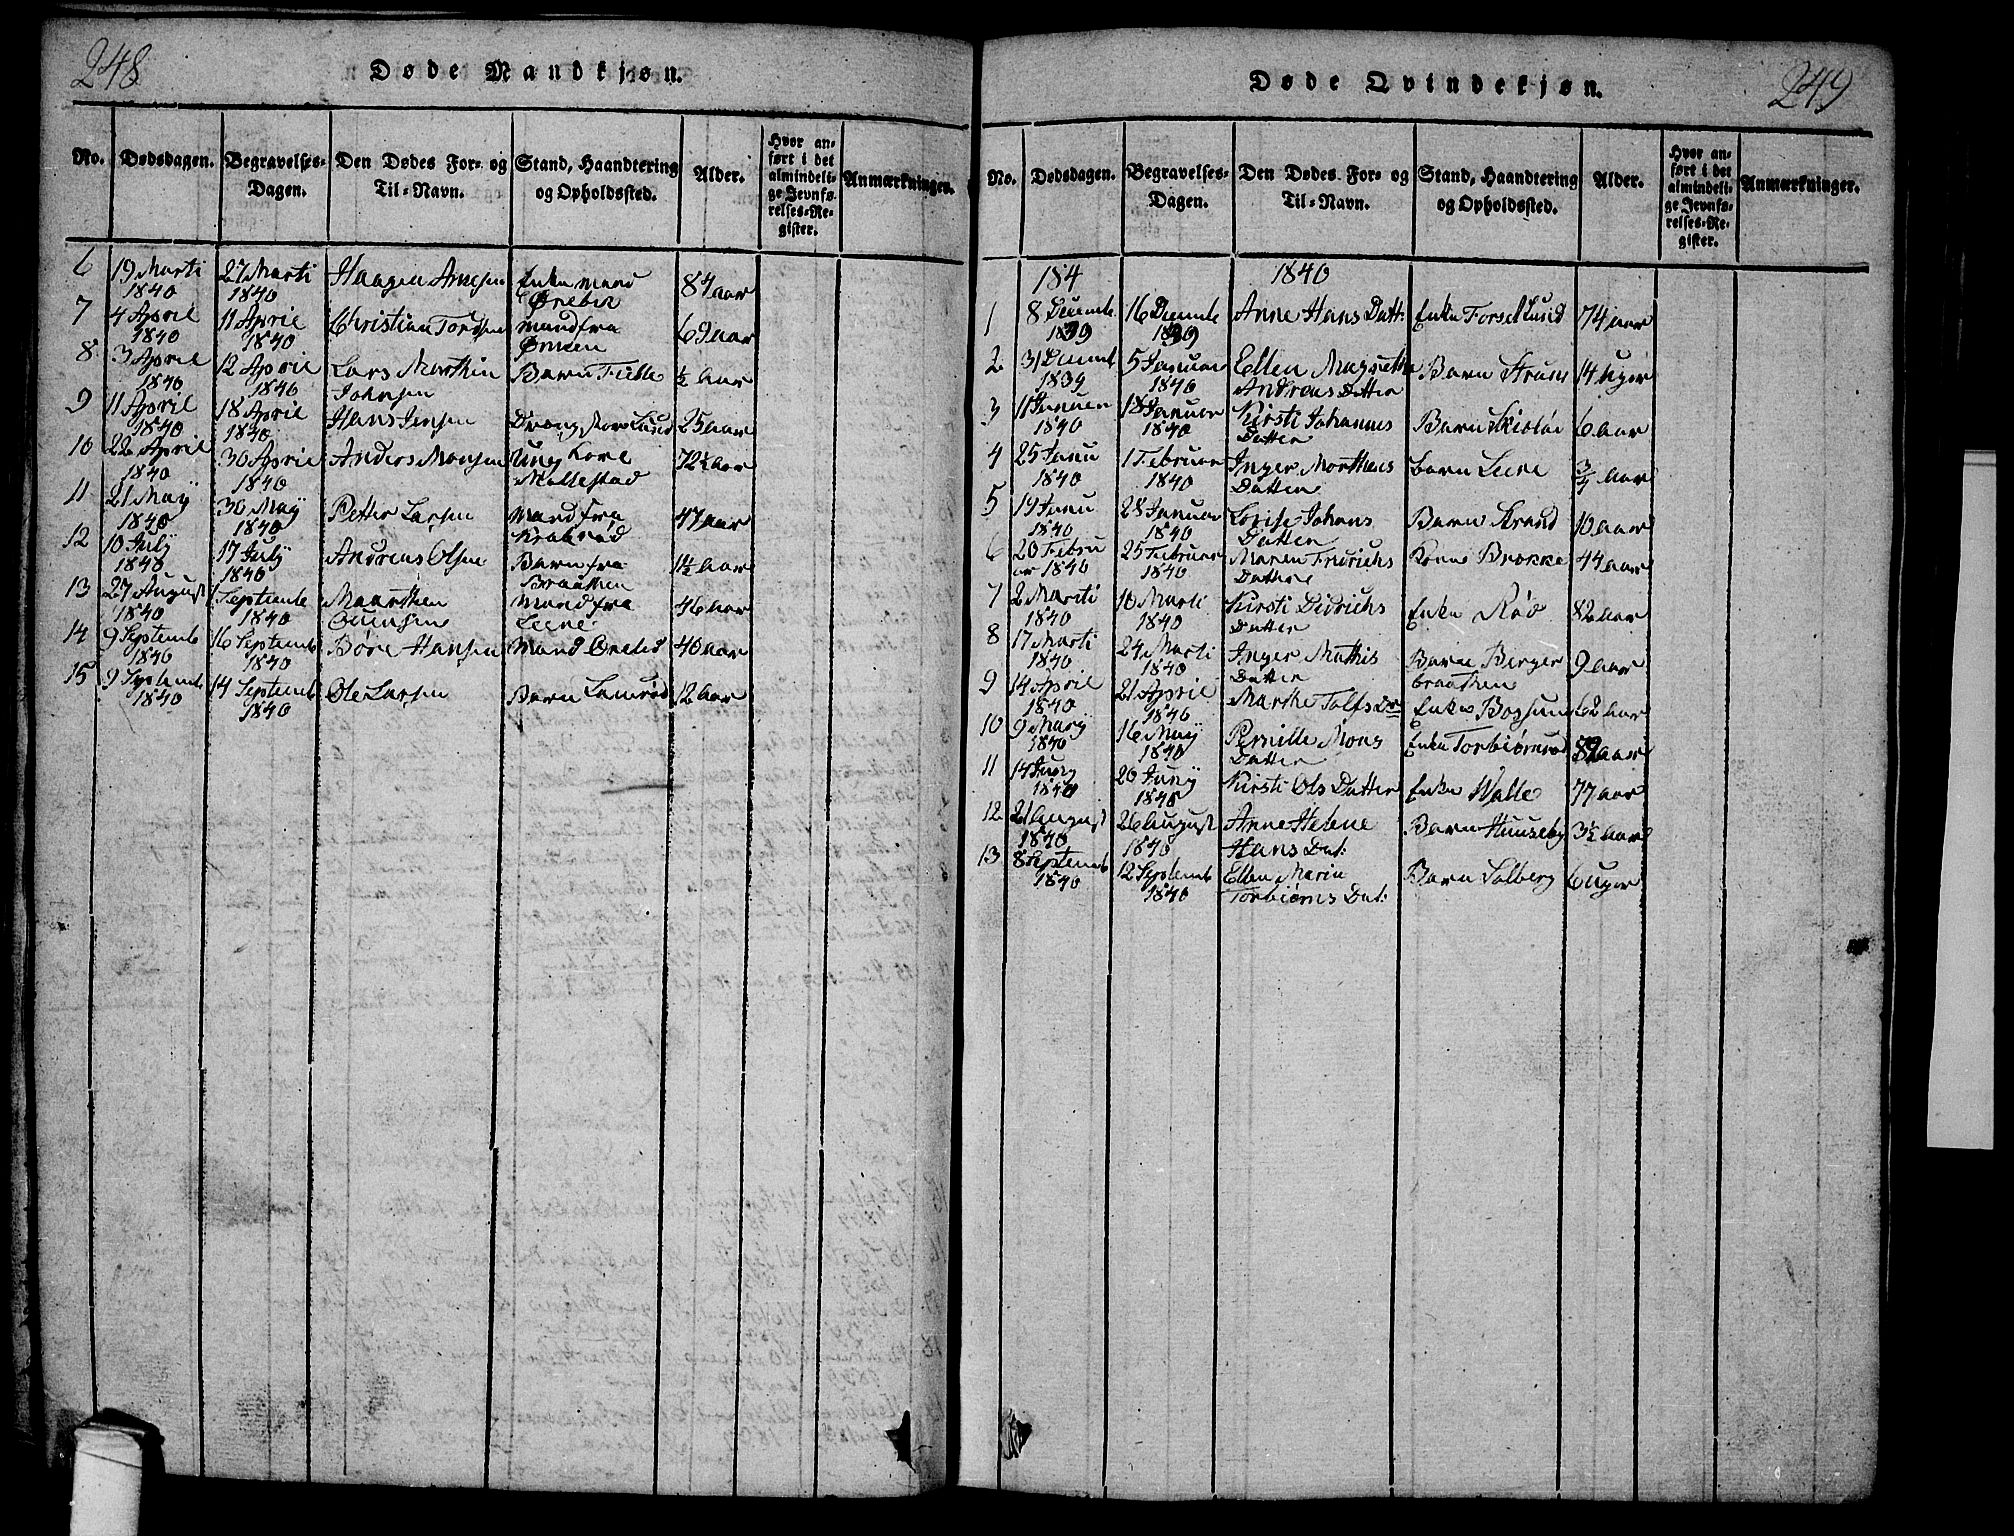 248
Døde Mandkjøn.
No.
Dødsdagen.
Begravelses-
Dagen.
Den Dødes For- og
Til-Navn.
Stand, Haandtering
og Opholdssted.
Alder.
Hvor an-
ført i det
almindeli-
ge Jevnfø-
relses-Re-
gister.
Anmærkninger.
6 19 Marti 27 Marti Haagen Arnesen Enkemand 84 aar
1840 1840 Ørebek
7 4 April 11 April Christian Tordsen mand fra 69 aar
1840 1840
8 3 April 12 April Lars Marthin Barn ½ aar
1840 1840 Johnsen
9 11 April 18 April Hans Jensen Dreng Lund 25 aar
1840 1840
10 22 April 30 April Anders Monsen Ung Karl 72½ aar
1840 1840 Mallestad
11 21 May 30 May Petter Larsen Mand fra 47 aar
1840 1840
12 10 July 17 July Andreas Olsen Barn fra 1½ aar
1840 1840 Braathen
13 27 August Septembe Marthen mand fra 46 aar
1840 1840 Leene
14 9 Septemb 16 Septemb Børe Hansen Mand 40 aar
1840 1840
15 9 Septemb 14 Septemb Ole Larsen Barn 12 aar
1840 1840
249
Døde Qvindekjøn.
No.
Dødsdagen.
Begravelses-
Dagen.
Den Dødes For- og
Til-Navn.
Stand, Haandtering
og Opholdssted.
Alder.
Hvor an-
ført i det
almindeli-
ge Jevnfø-
relses-Re-
gister.
Anmærkninger.
184 1840
1 8 Decemb 16 Decemb Anne Hans Datt: Enke Forsetlund 74 aar
1839 1839
2 31 Decemb 5 Januar Ellen Magrethe Barn Strand 14 Uger
1839 1840 Andreas Datter
3 11 Januar 18 Januar Kirsti Johannes Barn 6 aar
1840 1840 Datter
4 25 Janu 1 Februar Inger Morthens Barn Leene ¾ aar
1840 1840 Datter
5 19 Janu 28 Januar Lovise Johans Barn Strand 10 aar
1840 1840 Datter
6 20 Febru 25 Februar Maren Fridrichs Kone Brokke 44 aar
ar 1840 1840 Datter
7 2 Marti 10 Marti Kirsti Didrichs Enke Rød 82 aar
1840 1840 Datter
8 17 Marti 24 Marti Inger Mathis Barn Berger 9 aar
1840 1840 Datter braathen
9 14 April 21 April Marthe Tolfs Dr Enke 62 aar
1840 1840
10 9 May 16 May Pernille Mons Enke Torbiørnrød 82 aar
1840 1840 Datter
11 14 Juny 20 Juny Kirsti Ols Datter Enke Walle 77 aar
1840 1840
12 21 August 26 August Anne Helene Barn Huuseby 3½ aar
1840 1840 Hans Dat:
13 8 Septemb 12 Septemb Ellen Marie Barn Solberg 6 Uger
1840 1840 Torbiørns Dat: